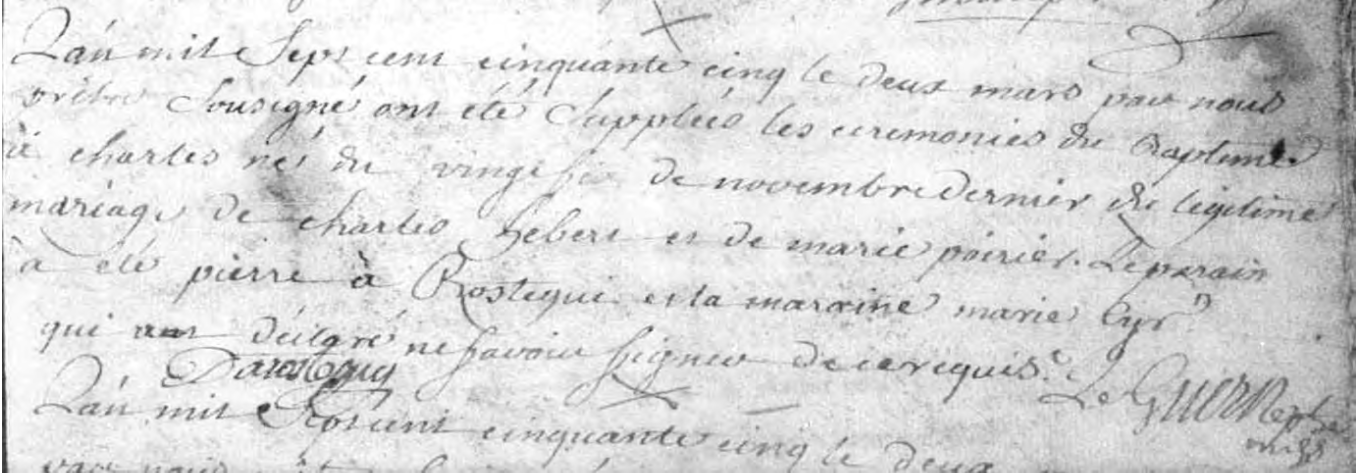 L'an mil Sept cent cinquante cinq le deux mars par nous
prêtre Sousigné ont été Suppléés les ceremonies du Baptême
à charles né du vingt six de novembre dernier du légitime
mariage de charles hebert et de marie poirier. Le parain
a été pierre à Rostegui et la maraine marie Cyr
qui ont déclaré ne savoir signer de ce requis.
Darosteguy Le Guerne ptre miss
L'an mil Sept cent cinquante cinq le deux
par nous